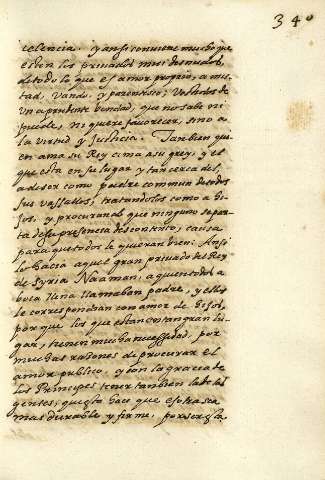 340
celencia. y ansi conviene mucho que
esten los privados mui desnudos,
de todo lo que es amor proprio, amis-
tad, vando, y parentesco; vestidos de
una prudente bondad, que no sabe ni
puede, ni quiere favorecer, sino a
la virtud y Justicia. Tanbien que
en ama su Rey ama a su grey, y el
que esta en su lugar y tan cerca del,
a de ser como padre commun de todos
sus vassallos, tratandolos como a hi-
jos, y procurando que ninguno se par-
ta de su presencia descontento, causa
para que todos le quieran bien: Ansi
lo hacia aquel gran privado del Rey
de Syria Naaman, a quien todos a
boca llena llamaban padre, y ellos
le correspondian con amor de hijos,
por que los que estan en tan gran lu-
gar, tienen mucha necessidad, por
muchas rasones de procurar el
amor publico, y con la gracia de
los Principes tener tanbien la de las
gentes; que esta hace que esotra sea
mas durable y firme, por ser esta